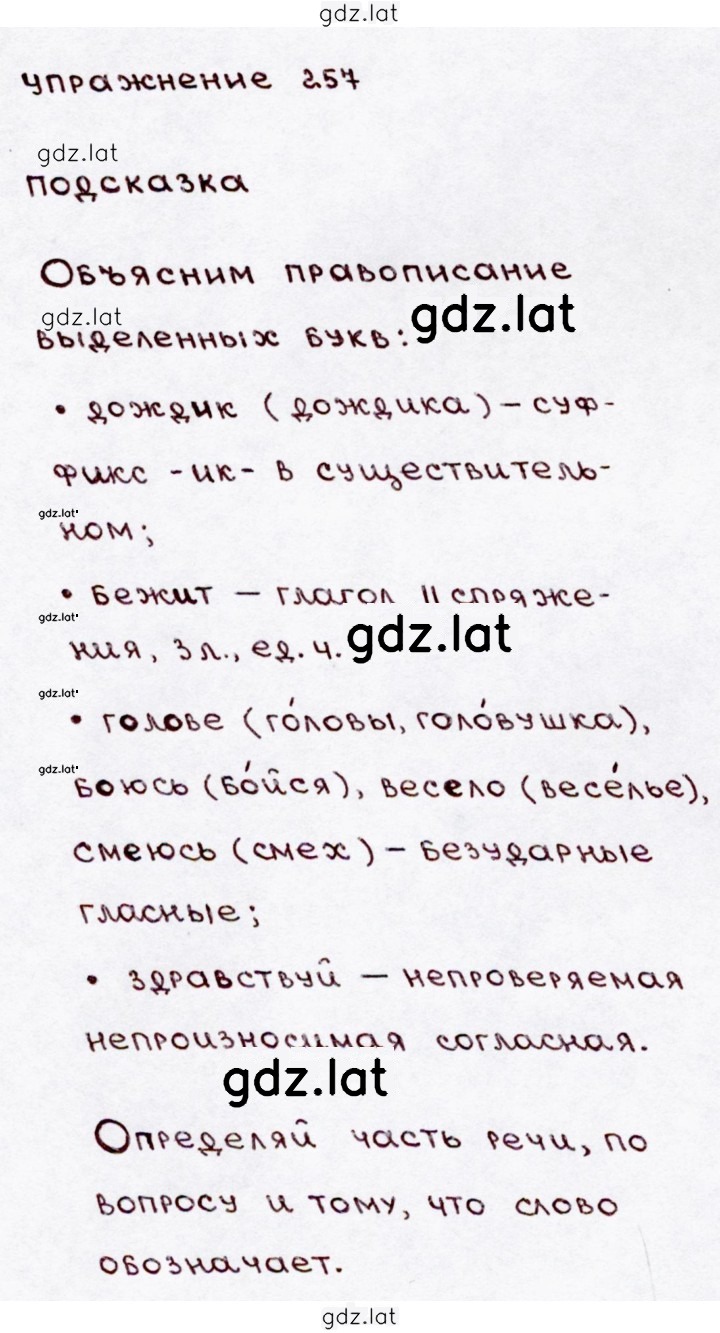 gdz.lat
упражнение 257
gdz.lat
подсказка
Объясним правописание
gdz.lat
выделенных букв:
gdz.lat
• дождик (дождика) – суф-
фикс -ик- в существитель-
gdz.lat
ном;
• бежит – глагол II спряже-
gdz.lat
ния, 3 л., ед. ч.
gdz.lat
gdz.lat
• голове (го́ловы, голо́вушка),
gdz.lat
боюсь (бо́йся), весело (весе́лье),
смеюсь (смех) – безударные
гласные;
• здравствуй – непроверяемая
непроизносимая согласная.
gdz.lat
Определяй часть речи, по
вопросу и тому, что слово
обозначает.
gdz.lat